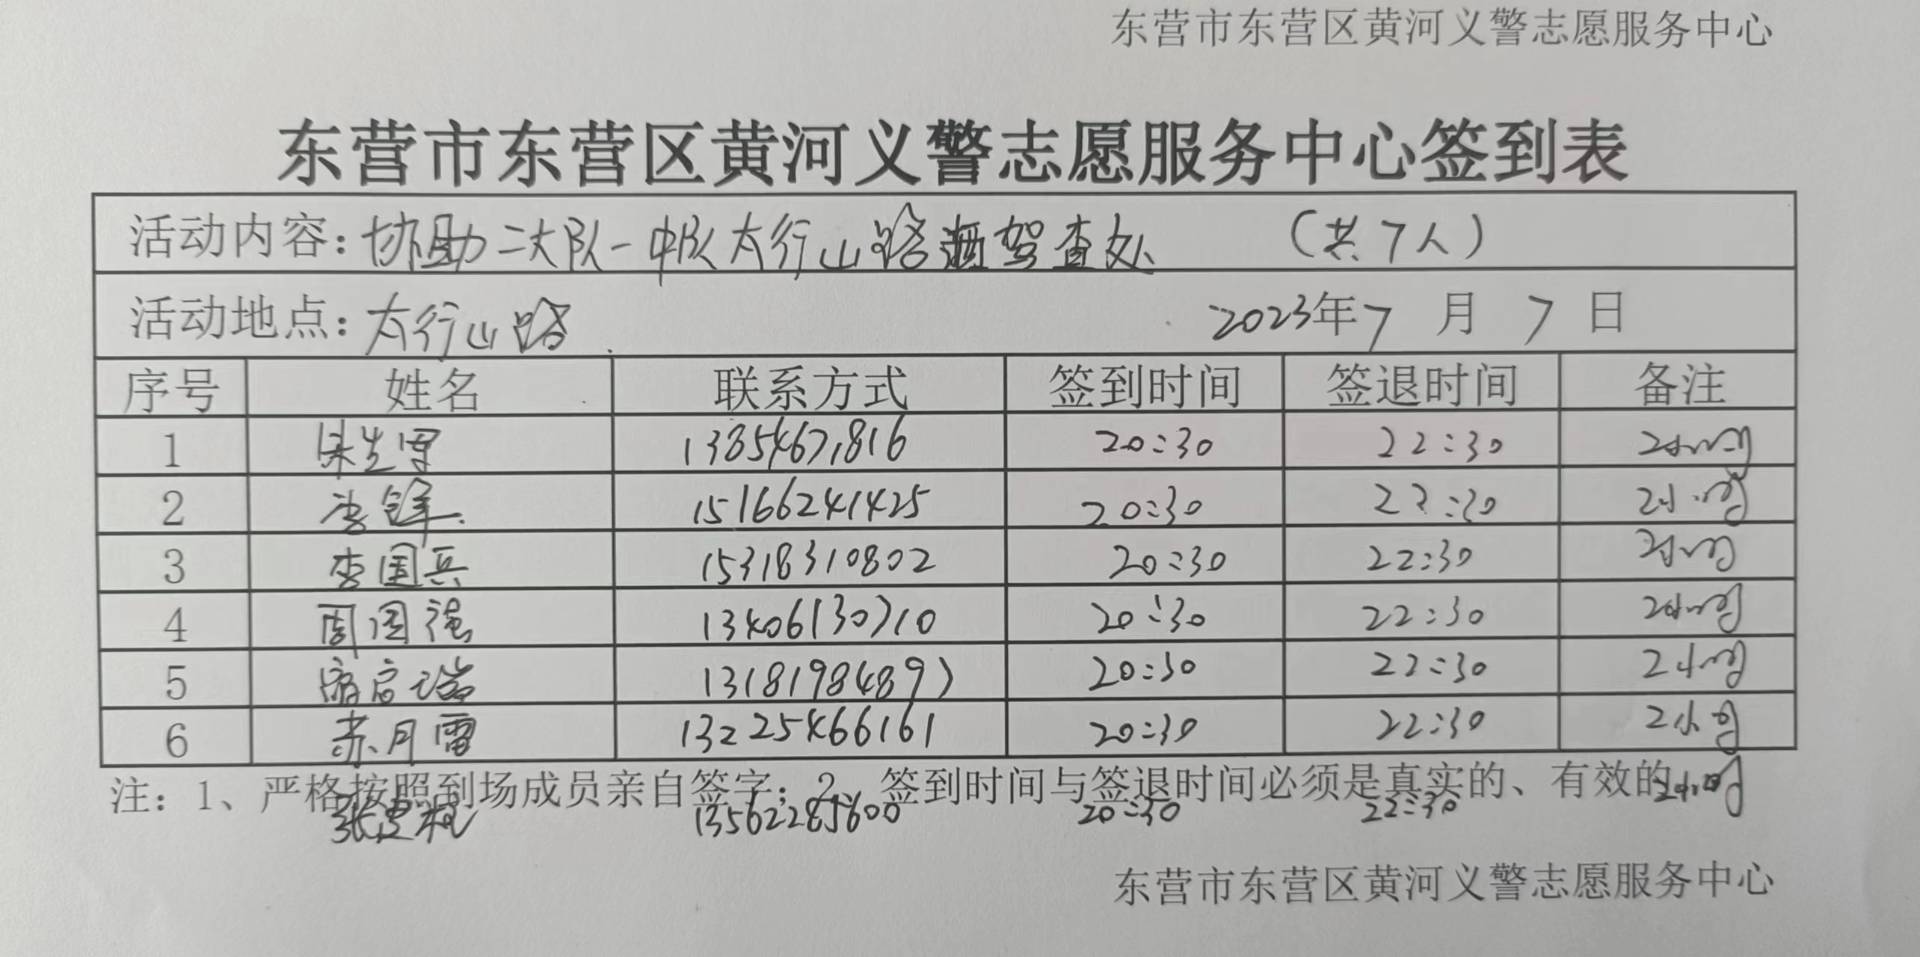 东营市东营区黄河义警志愿服务中心
东营市东营区黄河义警志愿服务中心签到表
活动内容：协助二大队一中队太行山路酒驾查处 （共7人）
活动地点：太行山路 2023年7月7日
序号 姓名 联系方式 签到时间 签退时间 备注
1 20:30 22:30 2小时
2 李锋 15166241425 20:30 22:30 2小时
3 李国兵 15318310802 20:30 22:30 2小时
4 周国强 13406130710 20:30 22:30 2小时
5 13181984897 20:30 22:30 2小时
6 13225466161 20:30 22:30 2小时
注：1、严格按照到场成员亲自签字；2、签到时间与签退时间必须是真实的、有效的
13562285600 20:30 22:30 2小时
东营市东营区黄河义警志愿服务中心